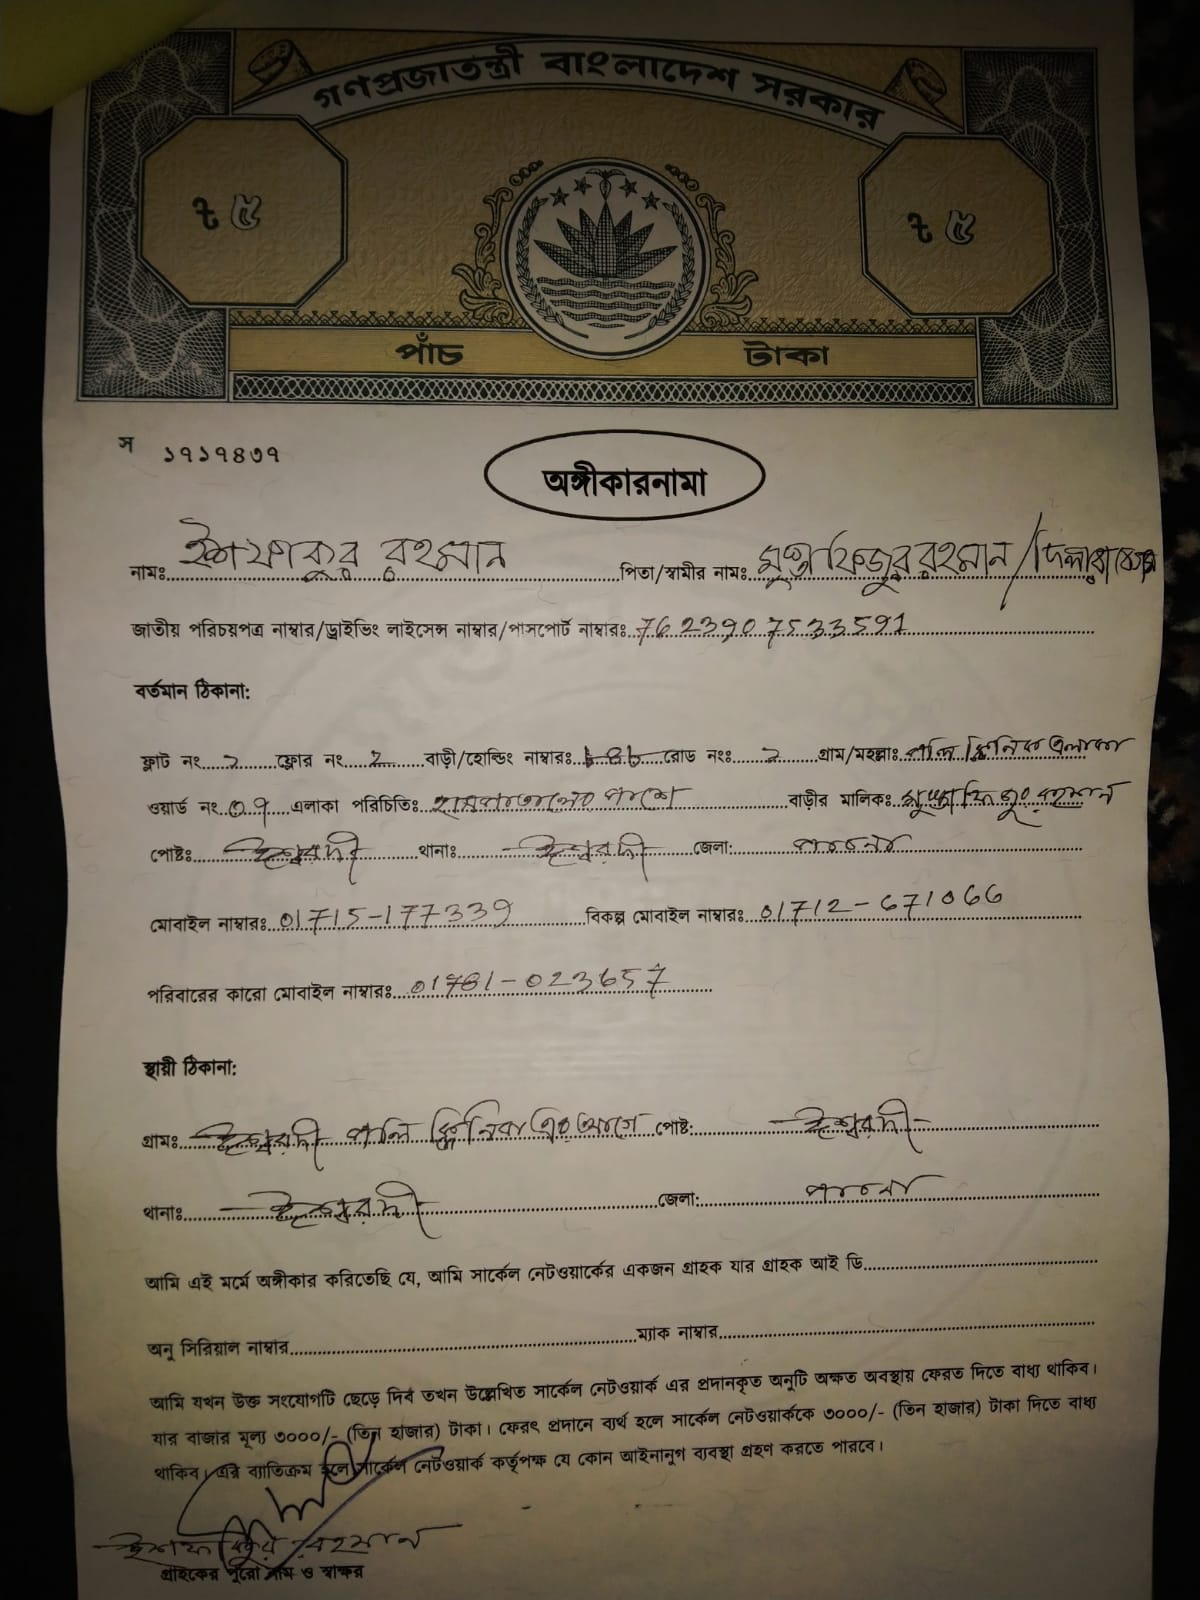 গণপ্রজাতন্ত্রী বাংলাদেশ সরকার
৳ ৫ ৳ ৫
পাঁচ টাকা
স ১৭১৭৪৩৭
অঙ্গীকারনামা
নামঃ ইশফাকুর রহমান পিতা/স্বামীর নামঃ মুস্তাফিজুর রহমান / দিলারা
জাতীয় পরিচয়পত্র নাম্বার/ড্রাইভিং লাইসেন্স নাম্বার/পাসপোর্ট নাম্বারঃ 7623907533591
বর্তমান ঠিকানা:
ফ্লাট নং ২ ফ্লোর নং 2 বাড়ী/হোল্ডিং নাম্বারঃ রোড নংঃ ২ গ্রাম/মহল্লাঃ পলি ক্লিনিক এলাকা
ওয়ার্ড নং ০৭ এলাকা পরিচিতিঃ হাসপাতালের পাশে বাড়ীর মালিকঃ মুস্তাফিজুর রহমান
পোষ্টঃ ঈশ্বরদী থানাঃ ঈশ্বরদী জেলা: পাবনা
মোবাইল নাম্বারঃ 01715-177339 বিকল্প মোবাইল নাম্বারঃ 01712-671066
পরিবারের কারো মোবাইল নাম্বারঃ 01781-023657
স্থায়ী ঠিকানা:
গ্রামঃ ঈশ্বরদী পলি ক্লিনিক এর আগে পোষ্ট: ঈশ্বরদী
থানাঃ ঈশ্বরদী জেলা: পাবনা
আমি এই মর্মে অঙ্গীকার করিতেছি যে, আমি সার্কেল নেটওয়ার্কের একজন গ্রাহক যার গ্রাহক আই ডি
অনু সিরিয়াল নাম্বার ম্যাক নাম্বার
আমি যখন উক্ত সংযোগটি ছেড়ে দিব তখন উল্লেখিত সার্কেল নেটওয়ার্ক এর প্রদানকৃত অনুটি অক্ষত অবস্থায় ফেরত দিতে বাধ্য থাকিব।
যার বাজার মূল্য ৩০০০/- (তিন হাজার) টাকা। ফেরৎ প্রদানে ব্যর্থ হলে সার্কেল নেটওয়ার্ককে ৩০০০/- (তিন হাজার) টাকা দিতে বাধ্য
থাকিব। এর ব্যতিক্রম হলে সার্কেল নেটওয়ার্ক কর্তৃপক্ষ যে কোন আইনানুগ ব্যবস্থা গ্রহণ করতে পারবে।
ইশফাকুর রহমান
গ্রাহকের পুরো নাম ও স্বাক্ষর